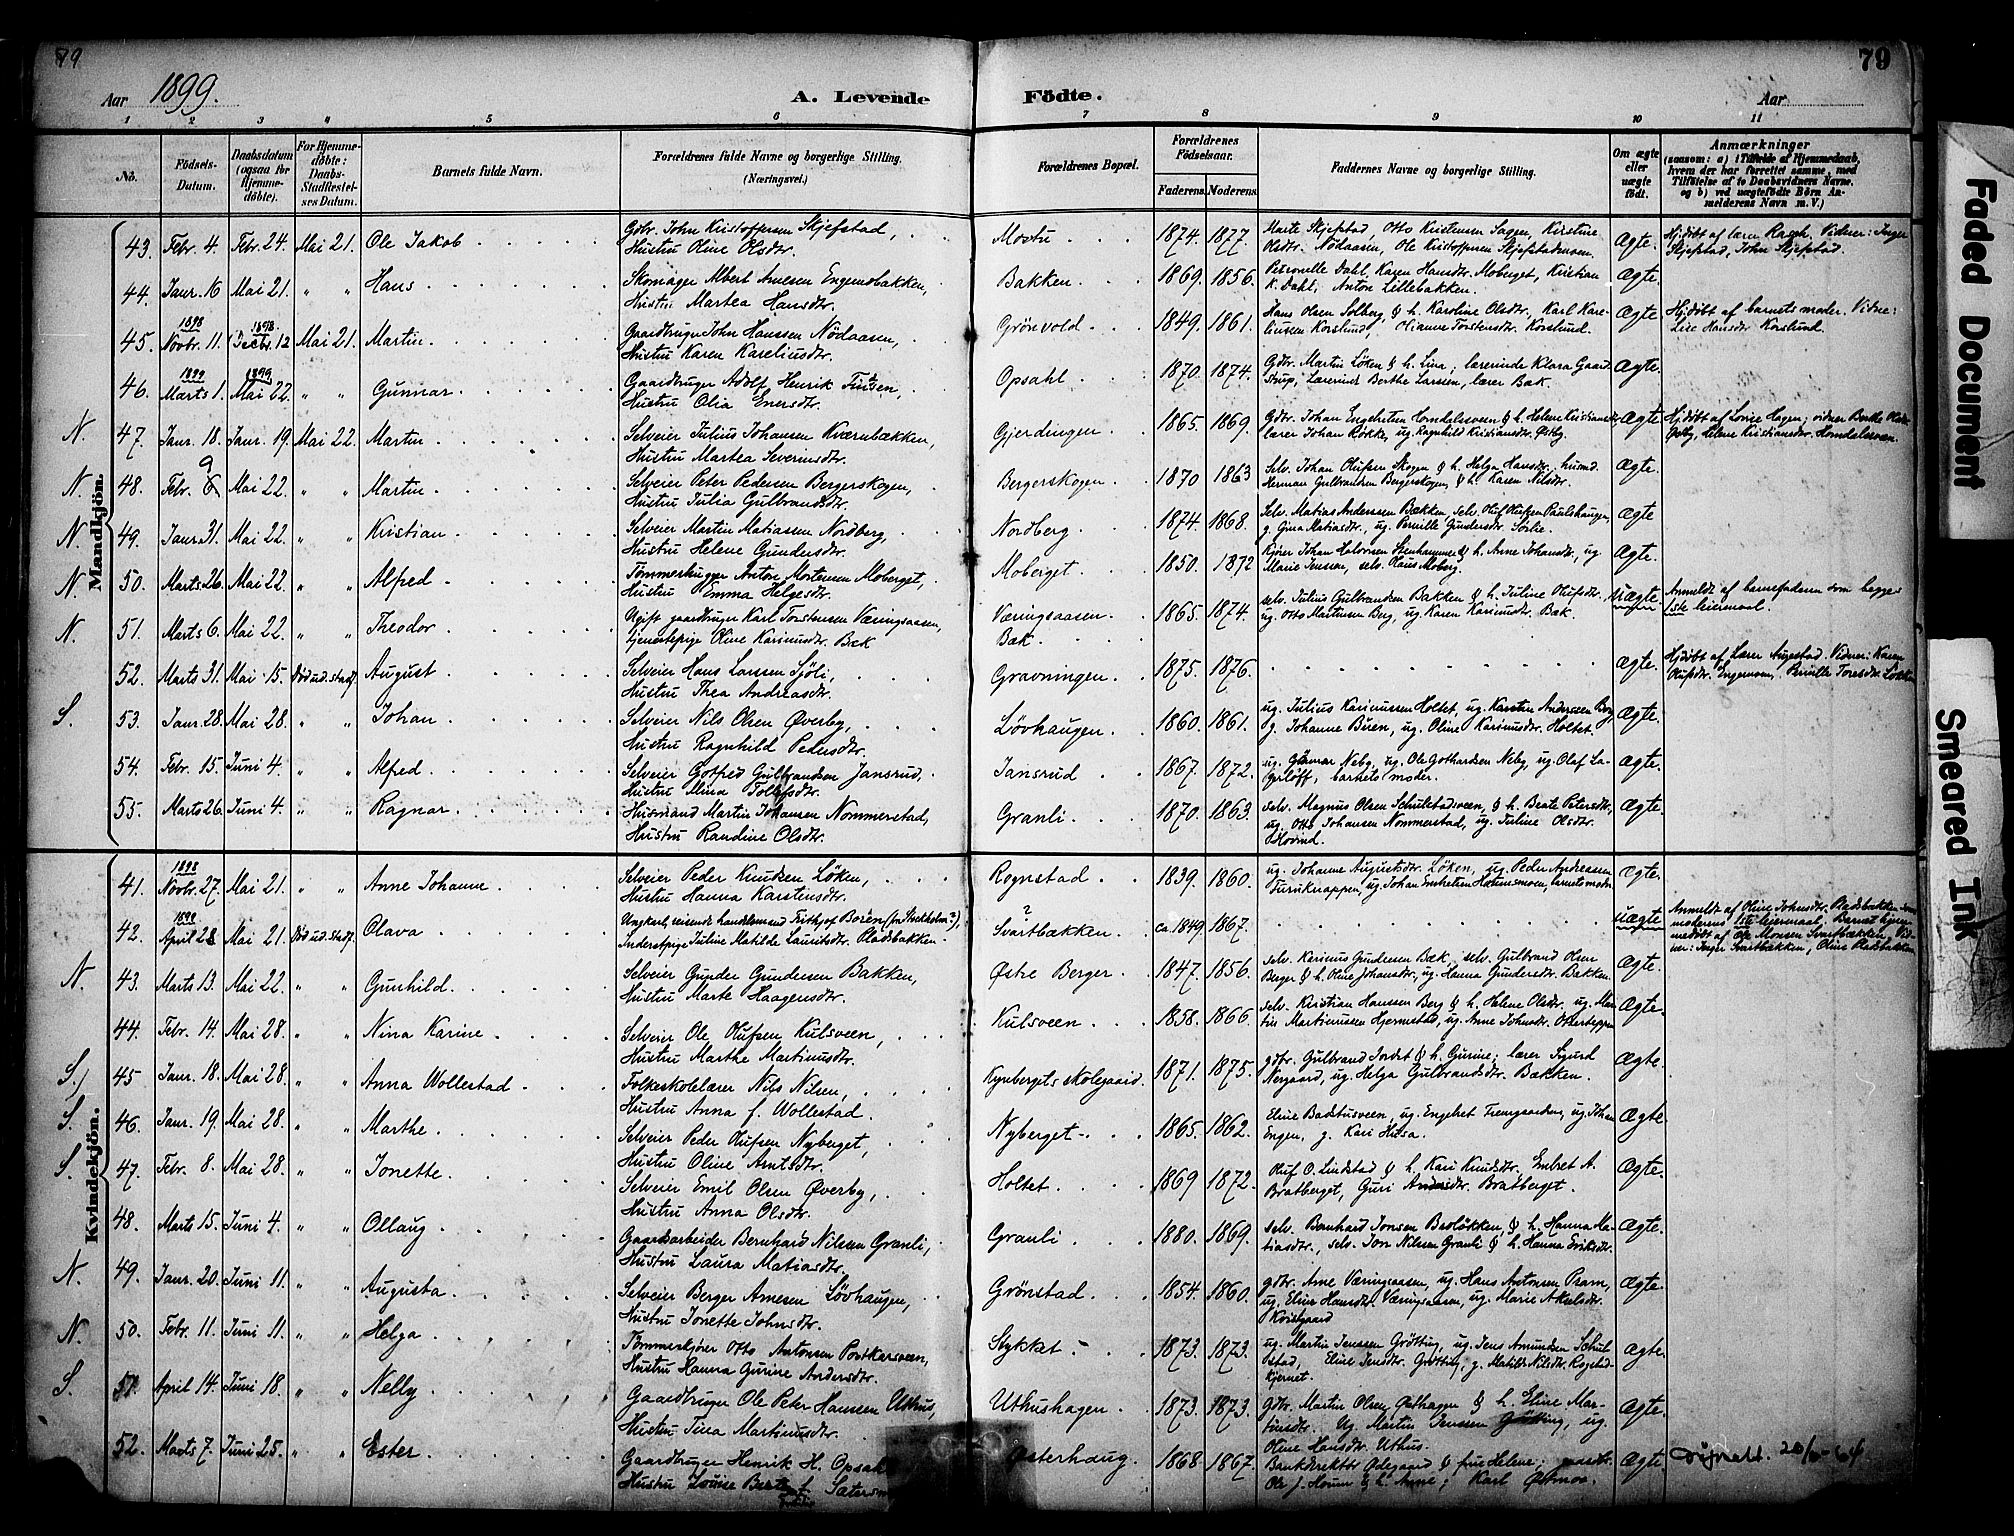 79
79
Aar 1899.
A. Levende Födte.
Aar
1 2 3 4 5 6 7 8 9 10 11
No.
Födsels-Datum.
Daabsdatum (ogsaa for Hjemmedöbte).
For Hjemmedöbte: Daabs-Stadfestelses Datum.
Barnets fulde Navn.
Forældrenes fulde Navne og borgerlige Stilling. (Næringsvei.)
Forældrenes Bopæl.
Forældrenes Födselsaar.
Faderens. Moderens.
Faddernes Navne og borgerlige Stilling.
Om ægte eller uægte födt.
Anmærkninger
(saasom: a) i Tilfælde af Hjemmedaab, hvem der har forrettet samme, med Tilföielse af to Daabsvidners Navne, og b) ved uægtefödte Börn Anmelderens Navn m. V.)
Mandkjön.
43. Febr. 4 Febr. 24. Mai 21. Ole Jakob Gdbr. John Kristoffersen Skjefstad, Hustru Oline Olsdtr. 1874. 1877. Marte Skjefstad, Otto Kristensen Saggen, Kirstine Olsdtr. Nölaasen, Ole Kristoffersen Ægte. Hjdöbt af læren Vidner: Inger Skjefstad, John Skjefstad.
44. Janr. 16 Mai 21. " " Hans Skomager Albert Arnesen Engensbakken, Hustru Martea Hansdtr. Bakken 1869. 1856. Petronelle Dahl, Karen Hansdtr. Moberget, Kristian K. Dahl, Anton Lillebakken. Ægte.
45. 1898 Novbr. 11. 1898. Decbr. 12 Mai 21. Martin Gaardbruger John Hanssen Nödaasen, Hustru Karen Kareliusdtr. Grönvold 1849. 1861. Hans Olsen Solberg, & h. Karoline Olsdtr, Karl Kareliussen Korslund, Olianne Torstensdtr. Korslund. Ægte. Hjdöbt af barnets moder. Vidne: Lise Hansdtr Korslund.
46. 1899 Marts 1. 1899 Mai 22. " " Gunnar Gaardbruger Adolf Henrik Hustru Olia Enersdtr. Opsahl 1870. 1874. Gdbr. Martin Löken & h. Lina; lærerinde Klara Gaardstrup, Lærerinde Berthe Larssen, lærer Bak. Ægte.
N. 47. Janr. 18. Janr. 19. Mai 22. Martin Selveier Julius Johansen Kværnbækken, Hustru Martea Severinsdtr. Gjerdingen 1865. 1869. Gdbr. Johan Engebretsen Homdalsveen & h. Helene lærer Johan Kokke, ug. Ragnhild Kristiansdtr. Østby. Ægte
N. 48. Febr. 9 Mai 22. " " Martin Selveier Peter Pedersen Bergerskogen, Hustru Julia Gulbrandsdtr. Bergerskogen 1870 1863 Selv. Johan Olufsen Skogen & h. Helga Hansdtr. husmd. Herman Gulbrandsen Bergerskogen, & h. Karen Nilsdtr. Ægte.
N. 49. Janr. 31. Mai 22. " " Kristian Selveier Martin Matiassen Nordberg, Hustru Helene Gundersdtr. Nordberg 1874. 1868. Selv. Matias Anderssen Bækken, selv. Oluf Olufsen Paulshaugen, g. Gina Matiasdtr, ug. Pernille Gundersdtr. Sorlie. Ægte
N. 50. Marts 26. Mai 22. " " Alfred Tömmerhugger Anton Mortensen Moberget, Hustru Emma Helgesdtr. Moberget 1850. 1872 Kjörer Johan Halvorsen Stenhammer & h. Anne Johansdtr, ug Marie Jenssen, selv. Olaus Moberg. Ægte.
N. 51. Marts 6. Mai 22. " " Theodor Ugift gaardbruger Karl Torstensen Væringsaasen, tjenestepige Oline Karinusdtr Bæk Væringsaasen. Bæk 1865. 1874. selv. Julius Gulbrandsen Bakken & h. Juline Olufsdtr. ug. Otto Martinsen Berg, ug. Karen Karinusdtr. Bæk. Uægte Anmeldt af barnefaderen som begges 1ste leiermaal.
52. Marts 31. Mai 15. Död ud. stadf. August Selveier Hans Larssen Sjöli, Hustru Thea Andreasdtr. Gravningen 1875. 1876. Ægte. Hjdöbt af Lærer Augestad. Vidner: Karen Olufsdtr. Engemoen, Pernille Toresdtr. Löken
S. 53. Janr. 28. Mai 28. " " Johan Selveier Nils Olsen Øverby, Hustru Ragnhild Pedersdtr. Lövhaugen 1860. 1861. ug. Julius Karinussen Holtet ug. Karsten Anderssen Berg g. Johanne Büren, ug. Oline Karinusdtr. Holtet. Ægte.
54. Febr. 15. Juni 4. " " Alfred Selveier Gotfred Gulbrandsen Jansrud, Hustru Mina Tollefsdtr. Jansrud 1867. 1872. ug. Gunnar Neby, ug. Ole Gothardsen Neby, ug. Olaf Lagerlöff, barnets moder. Ægte.
55. Marts 26. Juni 4. " " Ragnar Husmand Martin Johansen Nommerstad, Hustru Randine Olsdtr. Granli 1870. 1863. selv. Magnus Olsen Schulstadsveen, & h. Beate Petersdtr, ug. Otto Johansen Nommerstad, ug. Juline Olsdtr. Hovind. Ægte.
Kvindekjön.
41. 1898 Novbr. 27. Mai 21. " " Anne Johanne Selveier Peder Knudsen Löken, Hustru Hanna Karstensdtr. Rognstad 1839. 1860. ug. Johanne Augustsdtr. Löken, ug. Peder Andreassen Furuknappen, ug. Johan Embretsen barnets moder Ægte.
42. 1899 April 28 Mai 21. Död ud. stadf. Olava Ungkarl, reisende handelsmand Frithjof Borén (fra Stockholm?), Inderstpige Juline Matilde Lauritsdtr. Pladsbakken. ? Svartbækken ca. 1849. 1867. uægte Anmeldt af Oline Johnsdtr. Pladsbakken som moderens 1ste leiermaal. Barnet hjemmedöbt af Ole Monsen Svartbækken, Vidner: Inger Svartbækken, Oline Pladsbakken.
N. 43. Marts 13. Mai 22. " " Gunhild Selveier Gunder Gundersen Bakken, Hustru Marte Haagensdtr. Østre Berger 1847. 1856. selv. Karinus Gundersen Bæk, selv. Gulbrand Olsen Berger & h. Oline Johansdtr, ug. Hanna Gundersdtr. Bakken. Ægte.
44. Febr. 14. Mai 28. " " Nina Karine Selveier Ole Olufsen Kulsveen, Hustru Marthe Martinusdtr. Kulsveen 1858. 1866. selv. Kristian Hanssen Berg & h. Helene Olsdtr. ug. Martin Martinussen Hjermstad, ug. Anne Johnsdtr. Otterteppen Ægte.
S. 45 Janr. 18. Mai 28. " " Anna Wollestad Folkeskolelærer Nils Nilsen, Hustru Anna f. Wollestad. Kynbergets skolegaard. 1871. 1875. gdbr. Gulbrand Jordet & h. Gurine; lærer Sigurd Nergaard, ug. Helga Gulbrandsdtr. Bækken. Ægte
S. 46. Janr. 19. Mai 28. " " Marthe Selveier Peder Olufsen Nyberget, Hustru Oline Arntsdtr. Nyberget 1865. 1862. Eline Badstusveen, ug. Engebret ug. Johan Engen, g. Kari Husa. Ægte.
S. 47. Febr. 8. Mai 28. " " Jonette Selveier Emil Olsen Øverby, Hustru Anna Olsdtr. Holtet 1869 1872. Oluf O. Lindstad & h. Kari Knudsdtr, Embret A. Bratberget, Guri Andersdtr. Bratberget. Ægte.
48. Marts 15. Juni 4. " " Ollaug Gaardsarbeider Bernhard Nilsen Granli, Hustru Laura Matiasdtr. Granli 1880. 1869. selv. Bernhard Jonsen Basløkken, & h. Hanna Matiasdtr., selv. Jon Nilsen Granli & h. Hanna Eriksdtr. Ægte.
N. 49. Janr. 20. Juni 11. " " Augusta Selveier Berger Arnesen Lövhaugen, Hustru Jonette Johnsdtr. Grönstad 1854. 1860. gdbr. Arne Væringsaasen, ug. Hans Antonsen Pram, ug. Eline Hansdtr. Væringsaasen, ug. Marie Akselsdtr. Kvisgaard Ægte.
N. 50. Febr. 11. Juni 11. " " Helga Tömmerkjörer Otto Antonsen Hustru Hanna Gurine Andersdtr. Stykket 1873. 1873. ug. Martin Jenssen Grötting, ug. Jens Amundsen Schulstad, Eline Jensdtr. Grötting, g. Matilde Nilsdtr. Ægte.
S. 51. April 14. Juni 18. " " Nelly Gaardbruger Ole Peter Hanssen Uthus, Hustru Tina Martinusdtr. Uthushagen 1873. 1873. gdbr. Martin Olsen Østhagen & h. Eline Martinusdtr. Ug. Martin Jenssen Grötting, ug. Oline Hansdtr. Uthus. Ægte.
52. Marts 7. Juni 25. " " Ester Gaardbruger Henrik H. Hustru Louise Østerhaug. 1868. 1867. Bankdirektör Ødegaard & frue Helene; Ole J. & h. Anne; Karl Østmoe. Ægte.
Faded Document
Smeared Ink